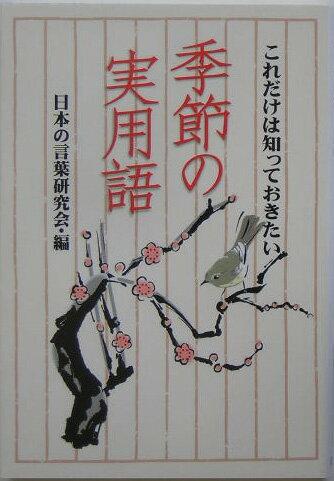 これだけは知っておきたい
季節の
実用語
日本の言葉研究会・編